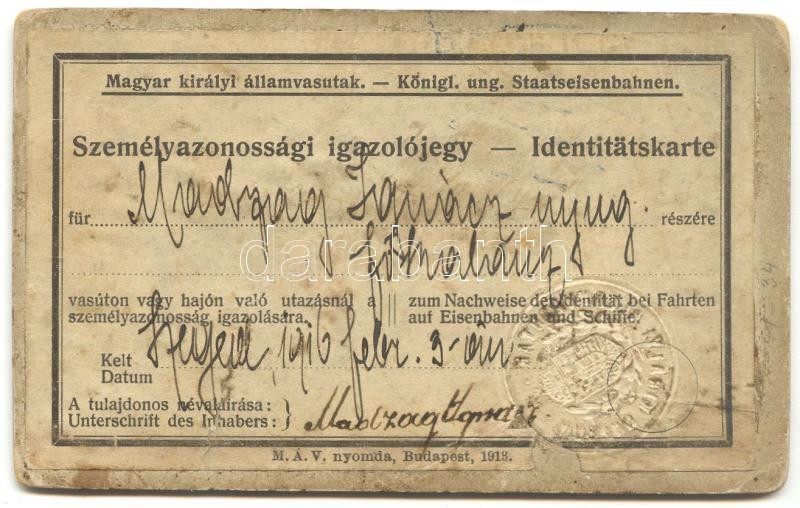 Magyar királyi államvasutak. — Königl. ung. Staatseisenbahnen.
Személyazonossági igazolójegy — Identitätskarte
für Madzag Ignácz nyug. részére
vasúton vagy hajón való utazásnál a személyazonosság igazolására.
zum Nachweise der Identität bei Fahrten auf Eisenbahnen und Schiffe.
Kelt
Datum
Szeged, 1916 febr. 3-án
A tulajdonos névaláirása:
Unterschrift des Inhabers:
Madzag Ignácz
M. Á. V. nyomda, Budapest, 1913.
darabanth
34